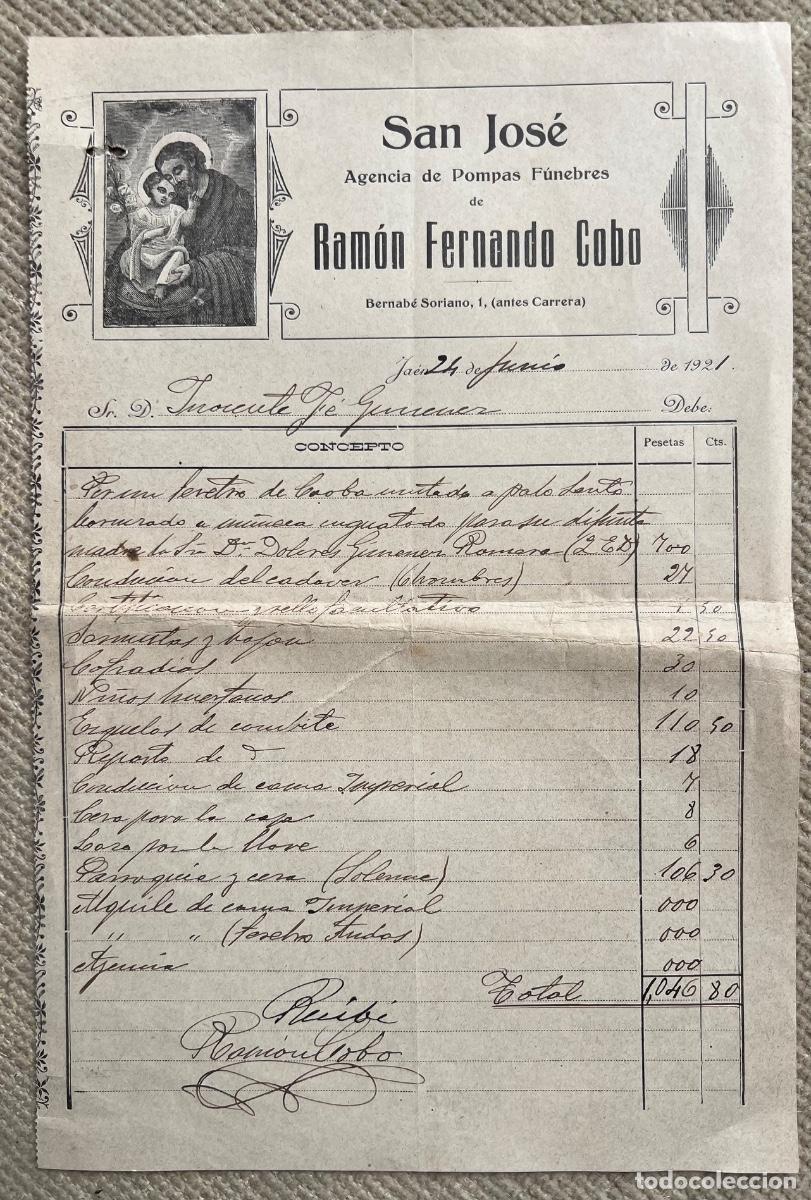 San José
Agencia de Pompas Fúnebres
de
Ramón Fernando Cobo
Bernabé Soriano, 1, (antes Carrera)
Jaén 24 de Junio de 1921.
Sr. D. Inocente Fé Gimenez Debe:
CONCEPTO Pesetas Cts.
Por un feretro de Caoba imitado a palo santo
barnizado a muñeca para su difunta
madre la Sra Dª Dolores Gimenez Romera (Q E D) 700
Condicion del cadaver (6 hombres) 27
Certificacion y sello facultativo 1 50
Sarmistas y bajon 22 50
Cofradias 30
Niños huerfanos 10
Esquelas de combite 110 50
Reparto de 18
Condicion de cama Imperial 7
Cera para la caja 8
Lazo para la llave 6
Parroquia y cera (Solemne) 106 30
Alquile de cama Imperial 000
" " (Feretro Andas) 000
Agencia 000
Total 1,046 80
Recibi
Ramon Cobo
todocoleccion